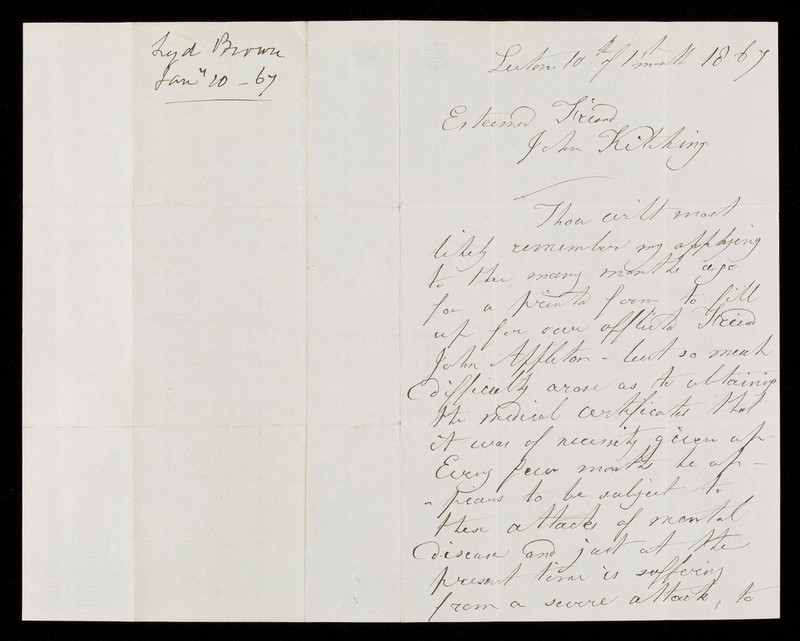 Lyd Brown
Jany 10 - 67
Luton 10th of 1st month 1867
Esteemed Friend
John Kitching
Thou wilt most
likely remember my applying
to thee many months ago
for a printed form to fill
up for our afflicted Friend
John Appleton - but so much
difficulty arose as to obtaining
the medical certificates that
it was of necessity given up -
Every few months he ap -
- pears to be subject to
these attacks of mental
disease and just at the
present time is suffering
from a severe attack, to